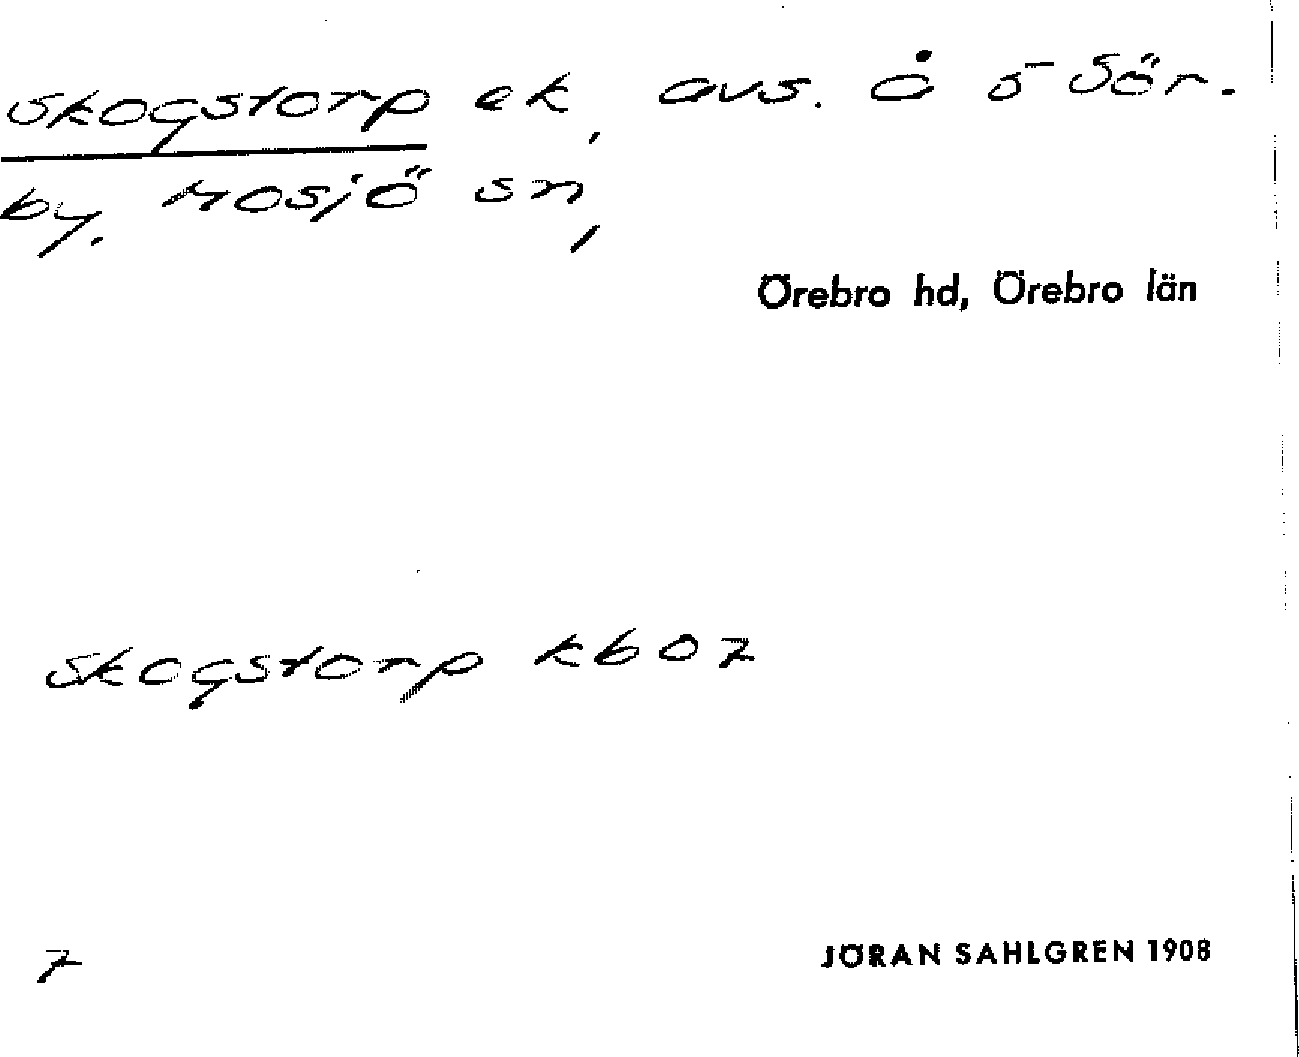 Skogstorp ek, avs. å 5 Sör.
by. Mosjö sn,
Örebro hd, Örebro län
Skogstorp kb 07
7
JÖRAN SAHLGREN 1908